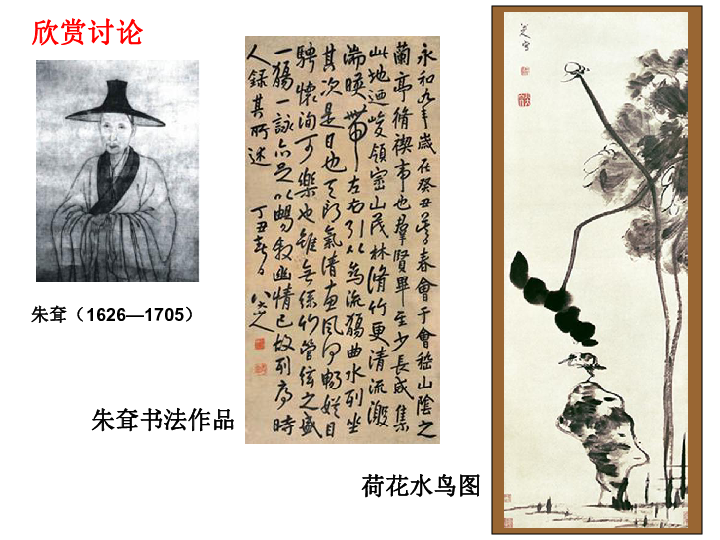 欣赏讨论
朱耷（1626—1705）
永和九年歲在癸丑暮春會于會嵇山陰之
蘭亭脩禊事也羣賢畢至少長咸集
此地迺峻領崇山茂林脩竹更清流激
湍暎帶左右引以為流觴曲水列坐
其次是日也天朗氣清惠風和暢娛目
騁懷洵可樂也雖無絲竹管絃之盛
一觴一詠亦足以暢敘幽情已故列序時
人錄其所述 丁丑春日 八大山人
朱耷书法作品
荷花水鸟图